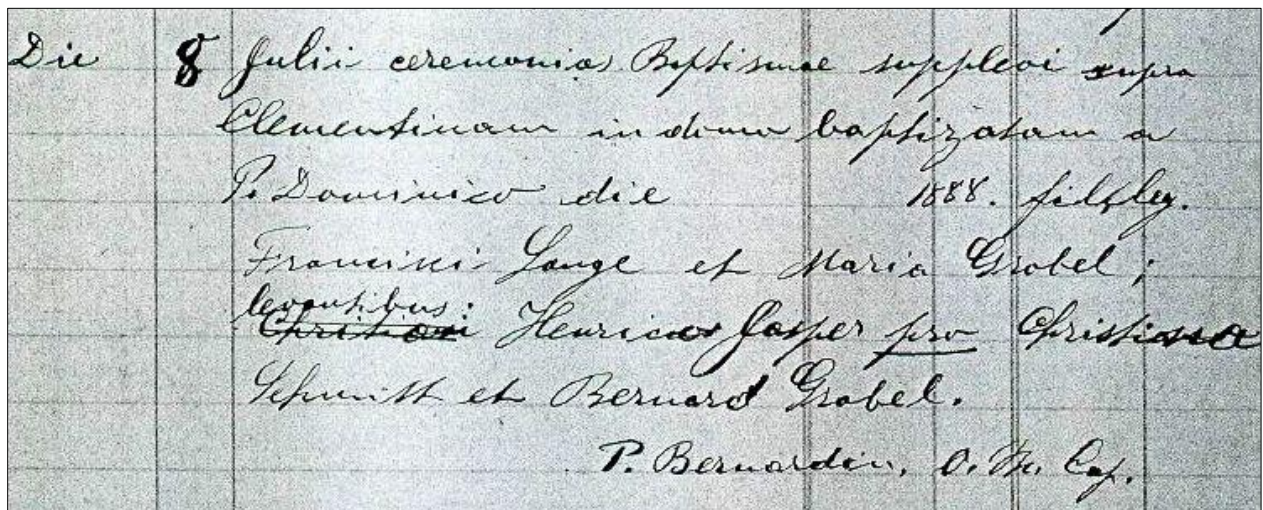 Die 8 Julii ceremonias Baptismae supplevi supra
Clementinam in domo baptizatam a
P. Dominico die 1888. fil. leg.
Francisci Lange et Maria Grobel;
levantibus:
Christian Henricus Jasper pro Christiana
Schmitt et Bernard Grobel.
P. Bernardin, O. M. Cap.